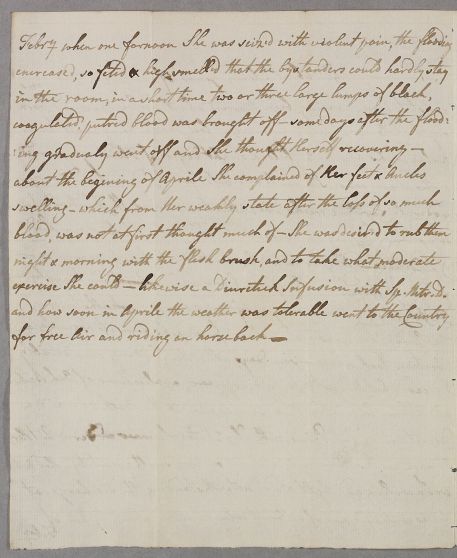 Febry when one fornoon She was seized with violent pain, the flooding
encreased, so fetid & high smelled that the bystanders could hardly stay
in the room, in a short time two or three large lumps of black,
coagulated, putrid blood was brought off – some days after the flood=
=ing gradualy went off and She thought herself recovering –
about the begining of Aprile She complained of Her feet & Ancles
swelling – which from Her weakly state after the loss of so much
blood, was not at first thought much of – She was desired to rub them
night & morning with the flesh brush, and to take what moderate
exercise She could – likewise a Diuretick Infusion with Sp. Nitr. D.
and how soon in Aprile the weather was tolerable went to the Country
for free Air and riding on horse back –